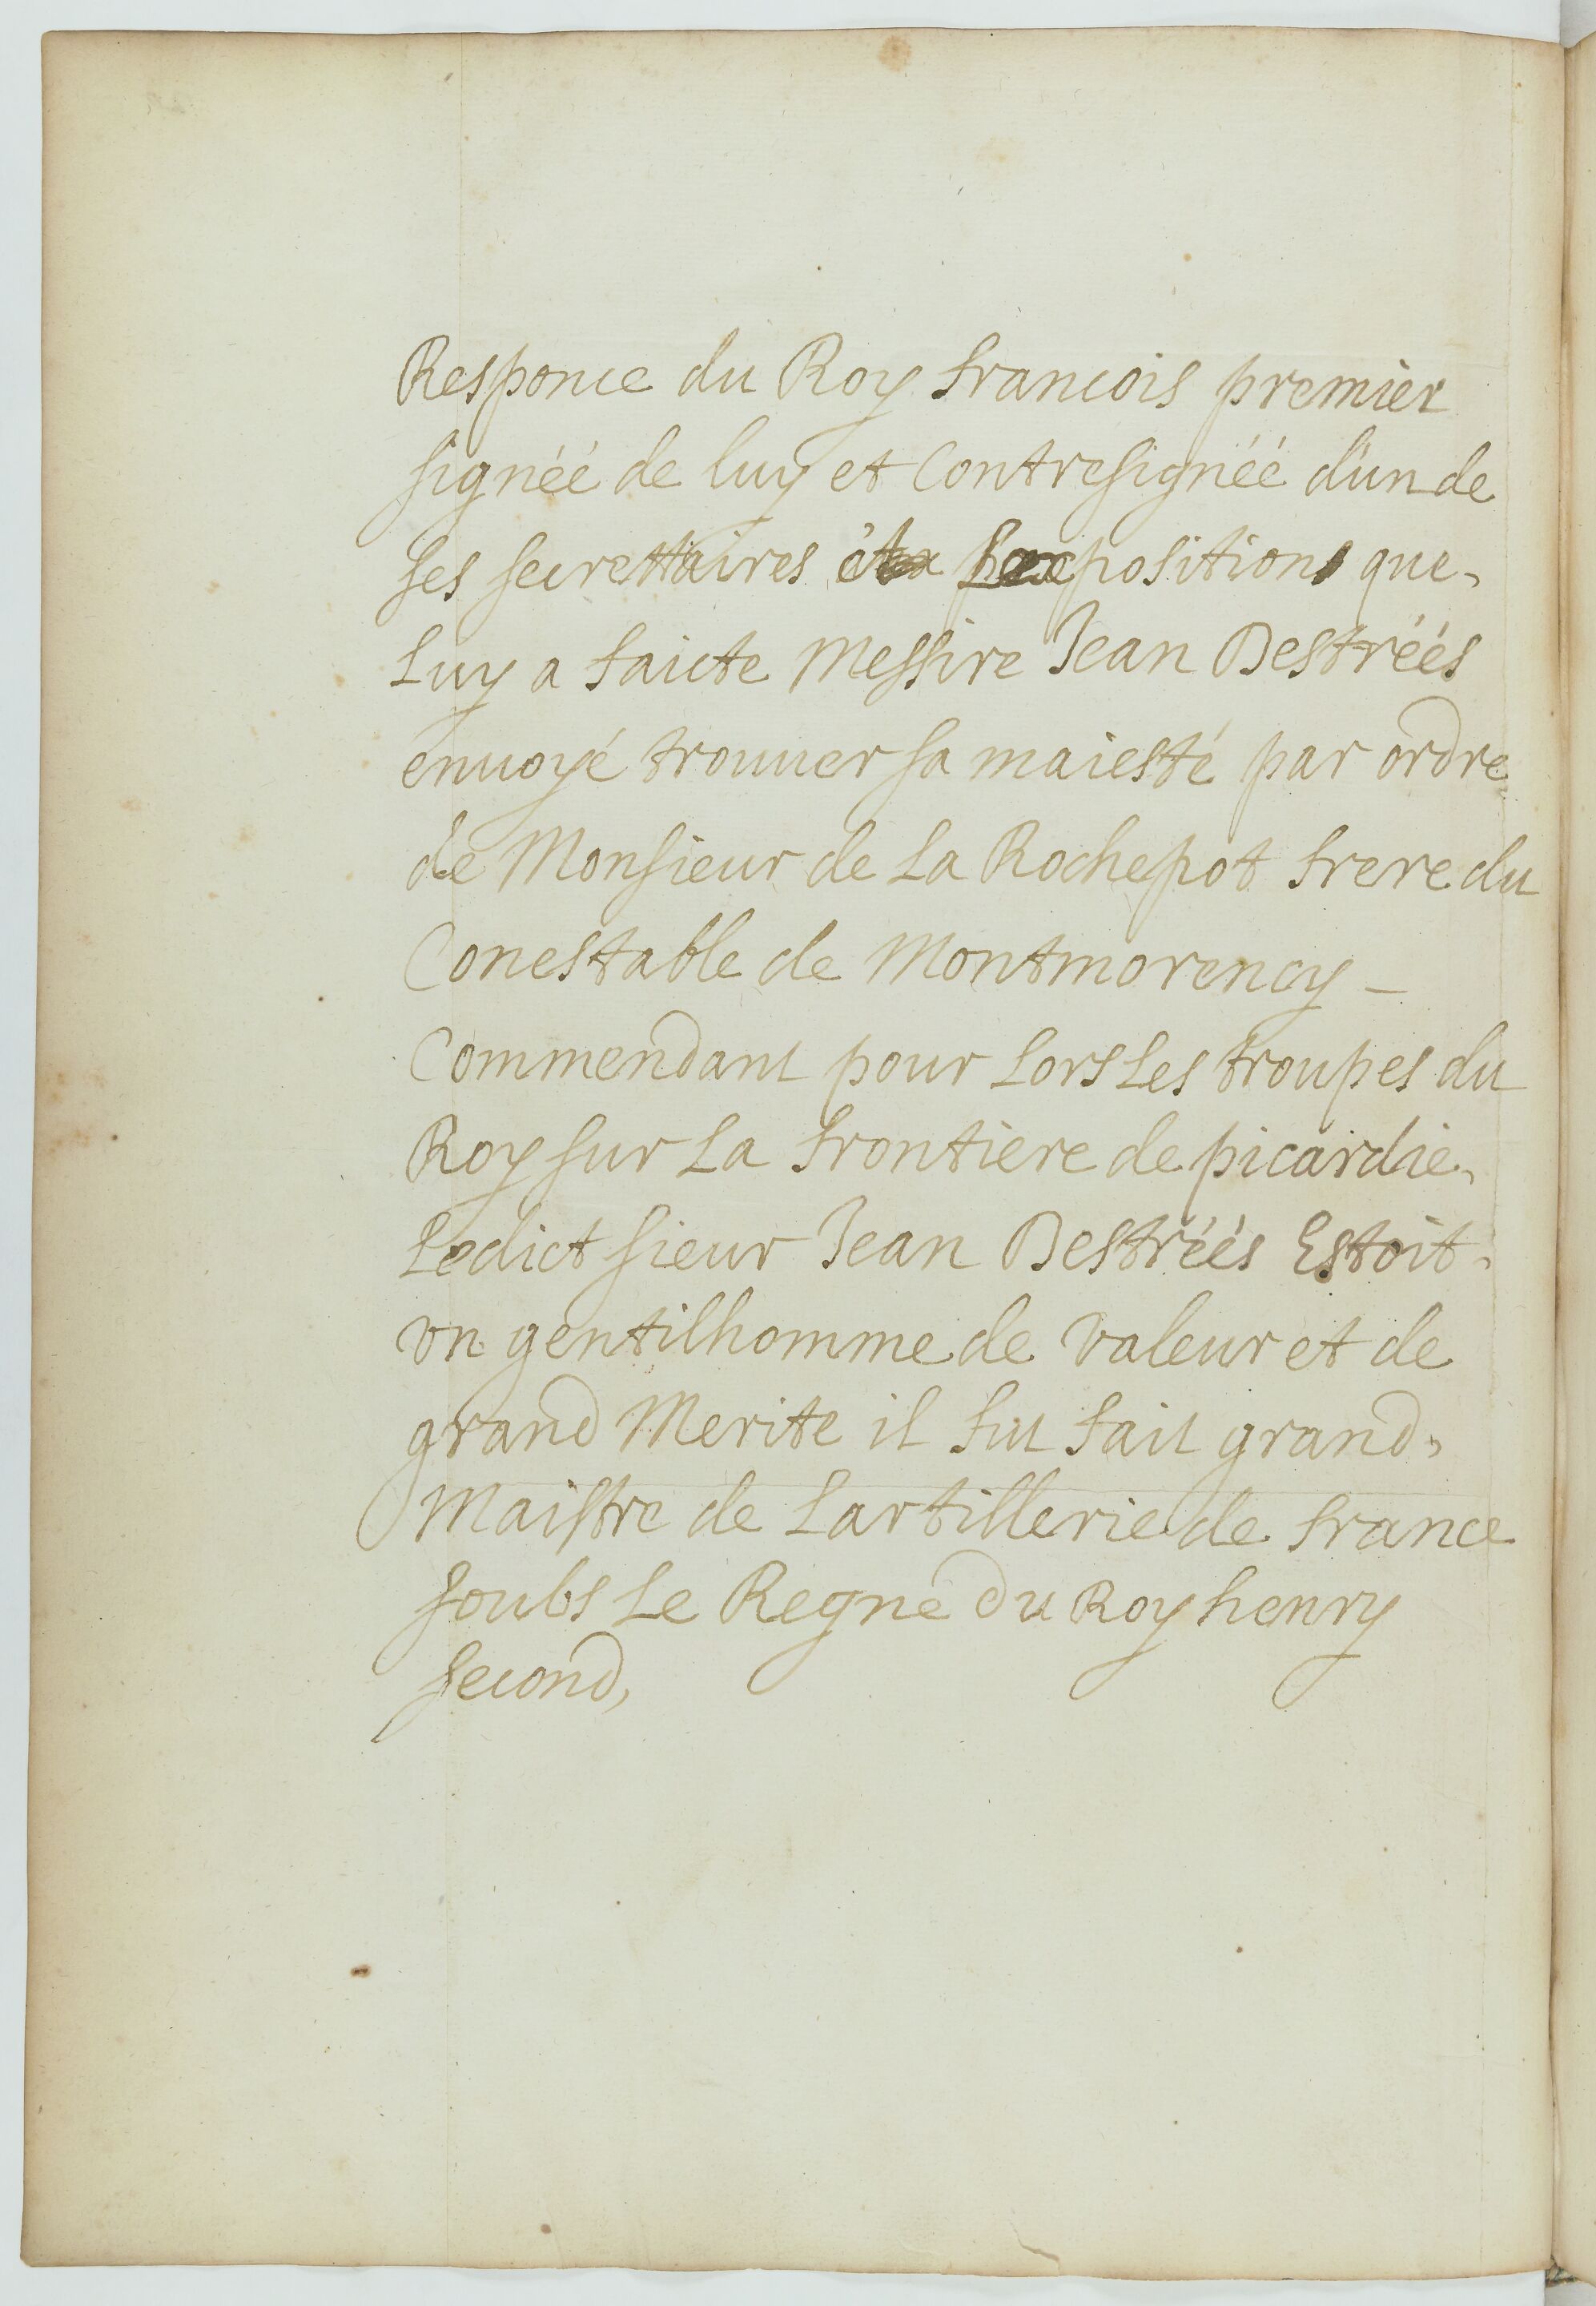 Responce du Roy francois premier
signéé de luy et Contresignéé d'un de
ses secrettaires a la position que
luy a faicte Messire Jean Destréés
enuoyé trouuer sa maiesté par ordre
de Monsieur de la Rochepot frere du
Conestable de Montmorency -
Commendant pour lors les troupes du
Roy sur la frontiere de picardie
Ledict sieur Jean Destréés Estoit
vn gentilhomme de valeur et de
grand Merite il fut fait grand
Maistre de Lartillerie de france
soubs le Regne du Roy henry
second,